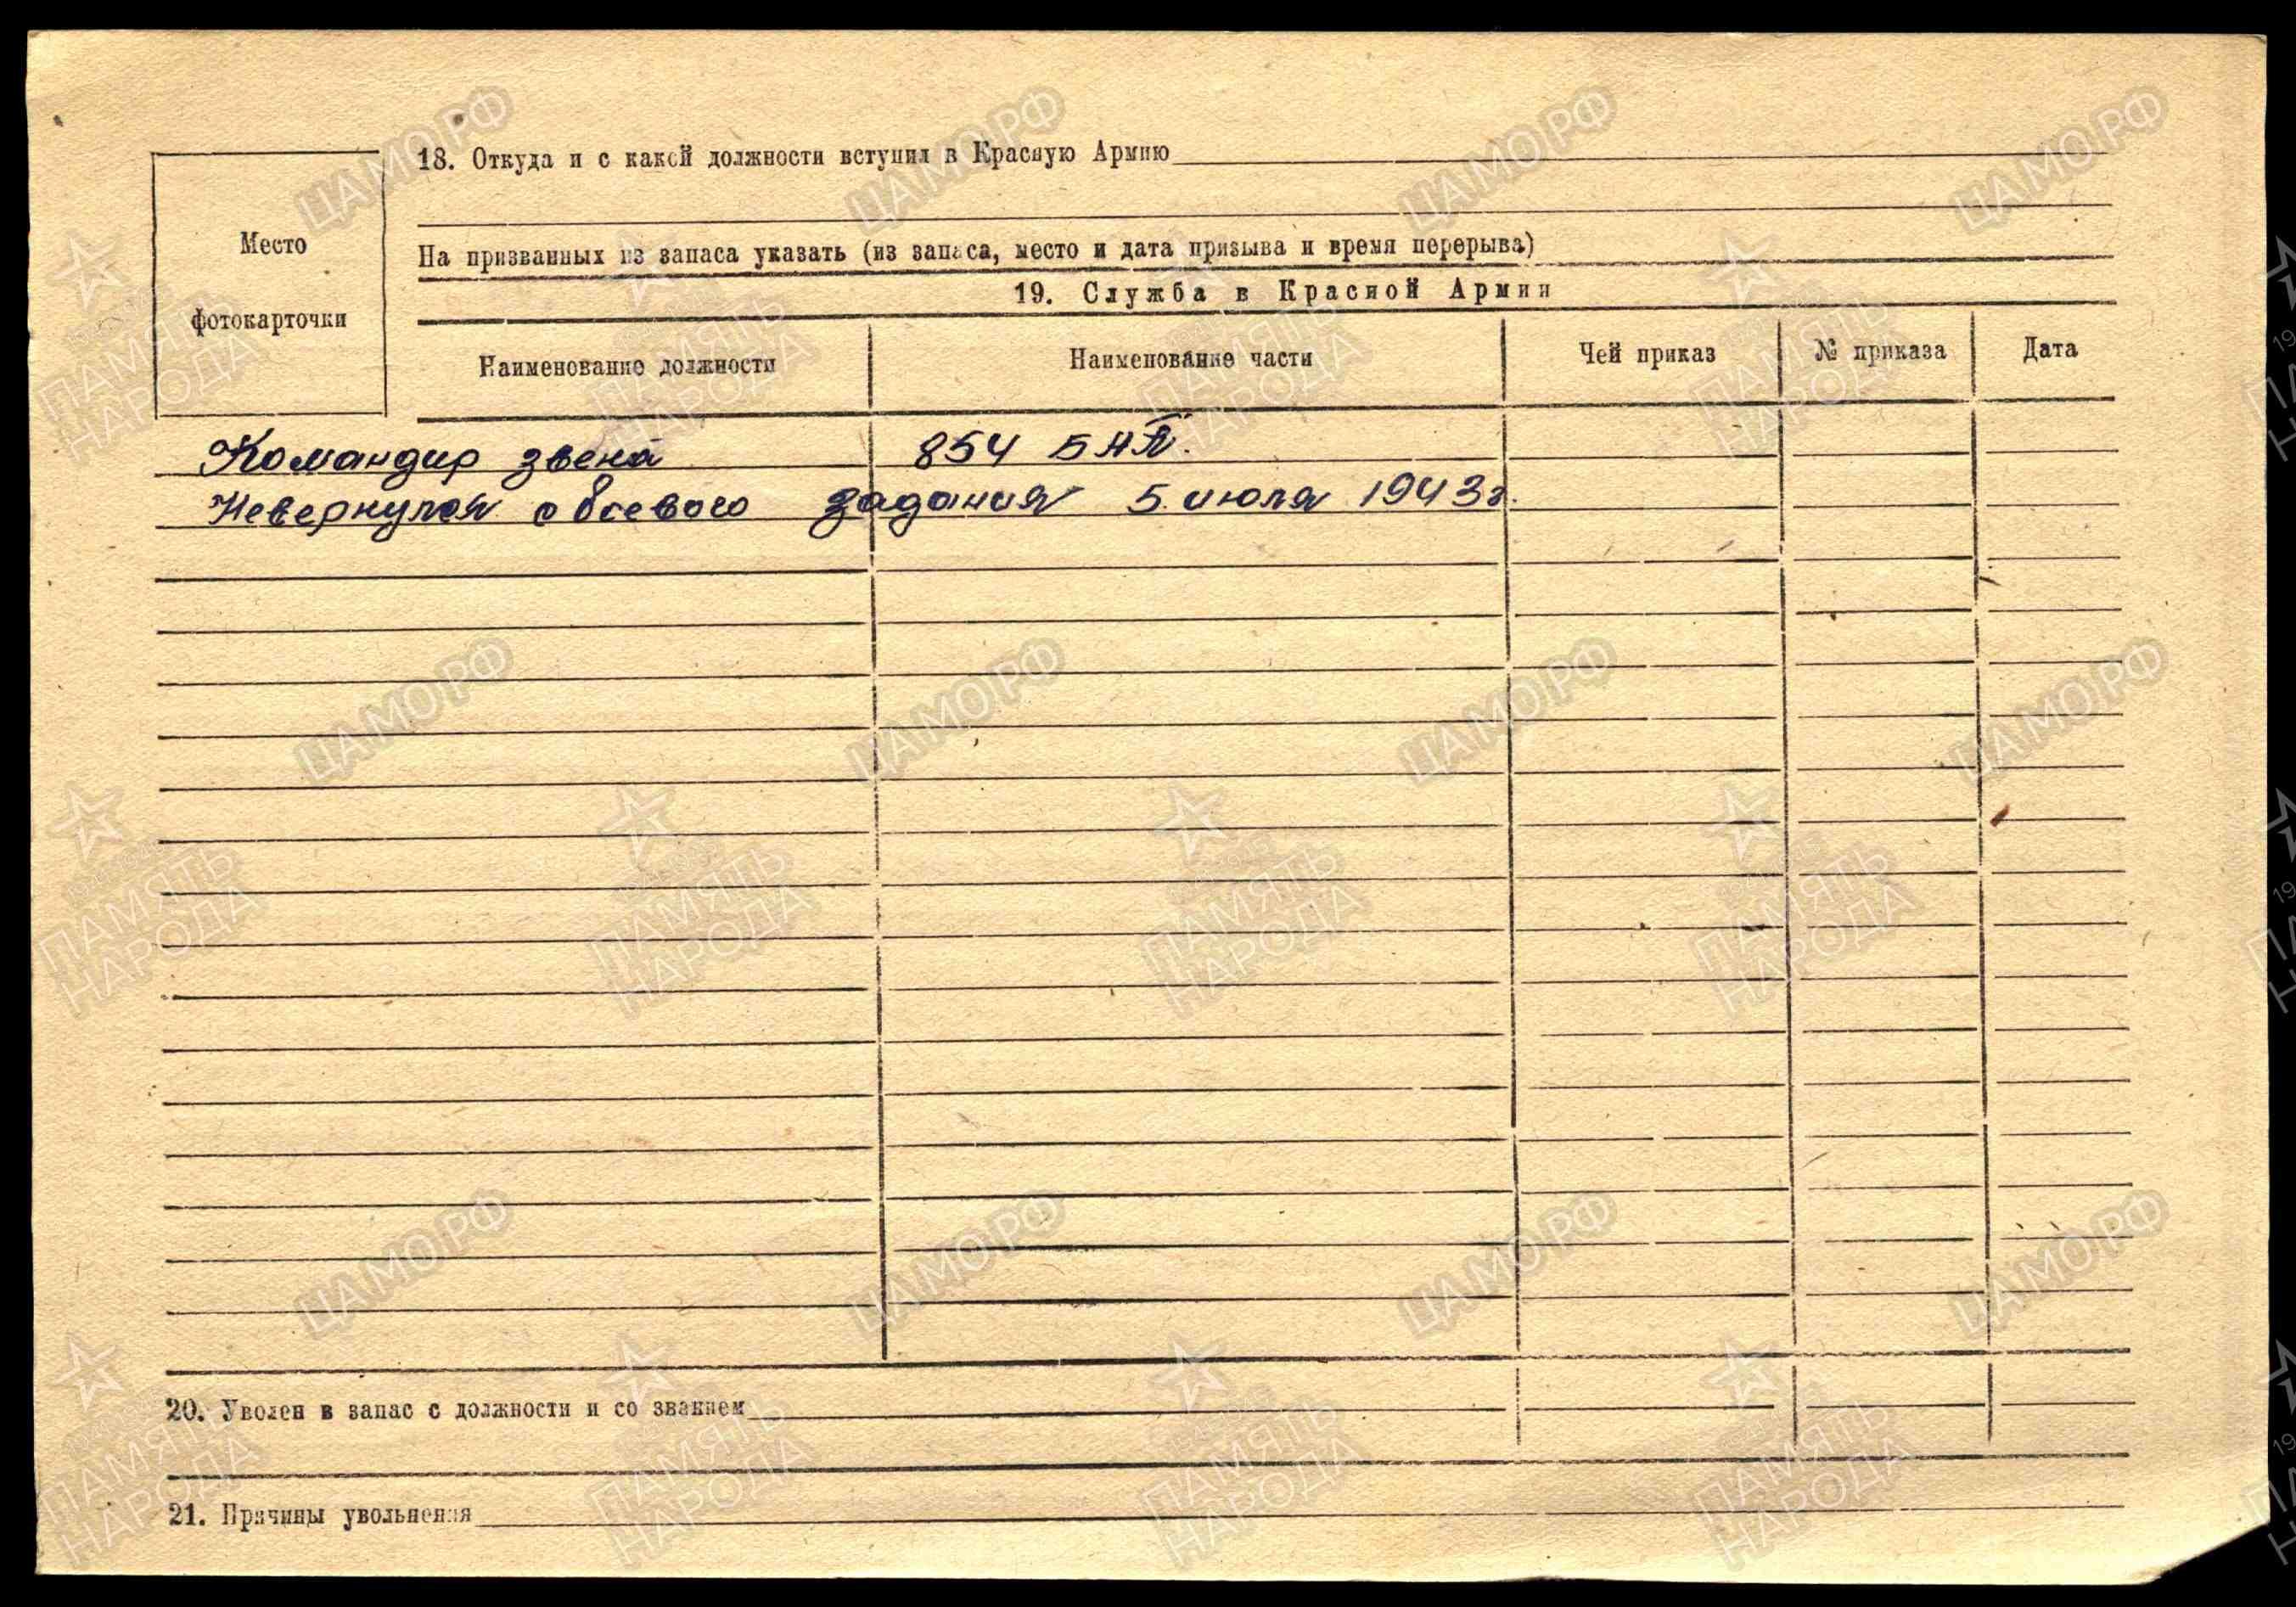 18. Откуда и с какой должности вступил в Красную Армию
На призванных из запаса указать (из запаса, место и дата призыва и время перерыва)
Место
фотокарточки
19. Служба в Красной Армии
Наименование должности Наименование части Чей приказ № приказа Дата
Командир звена 854 БАП.
Невернулся с боевого задания 5 июля 1943г.
20. Уволен в запас с должности и со званием
21. Причины увольнения
ЦАМО.РФ
ПАМЯТЬ
НАРОДА